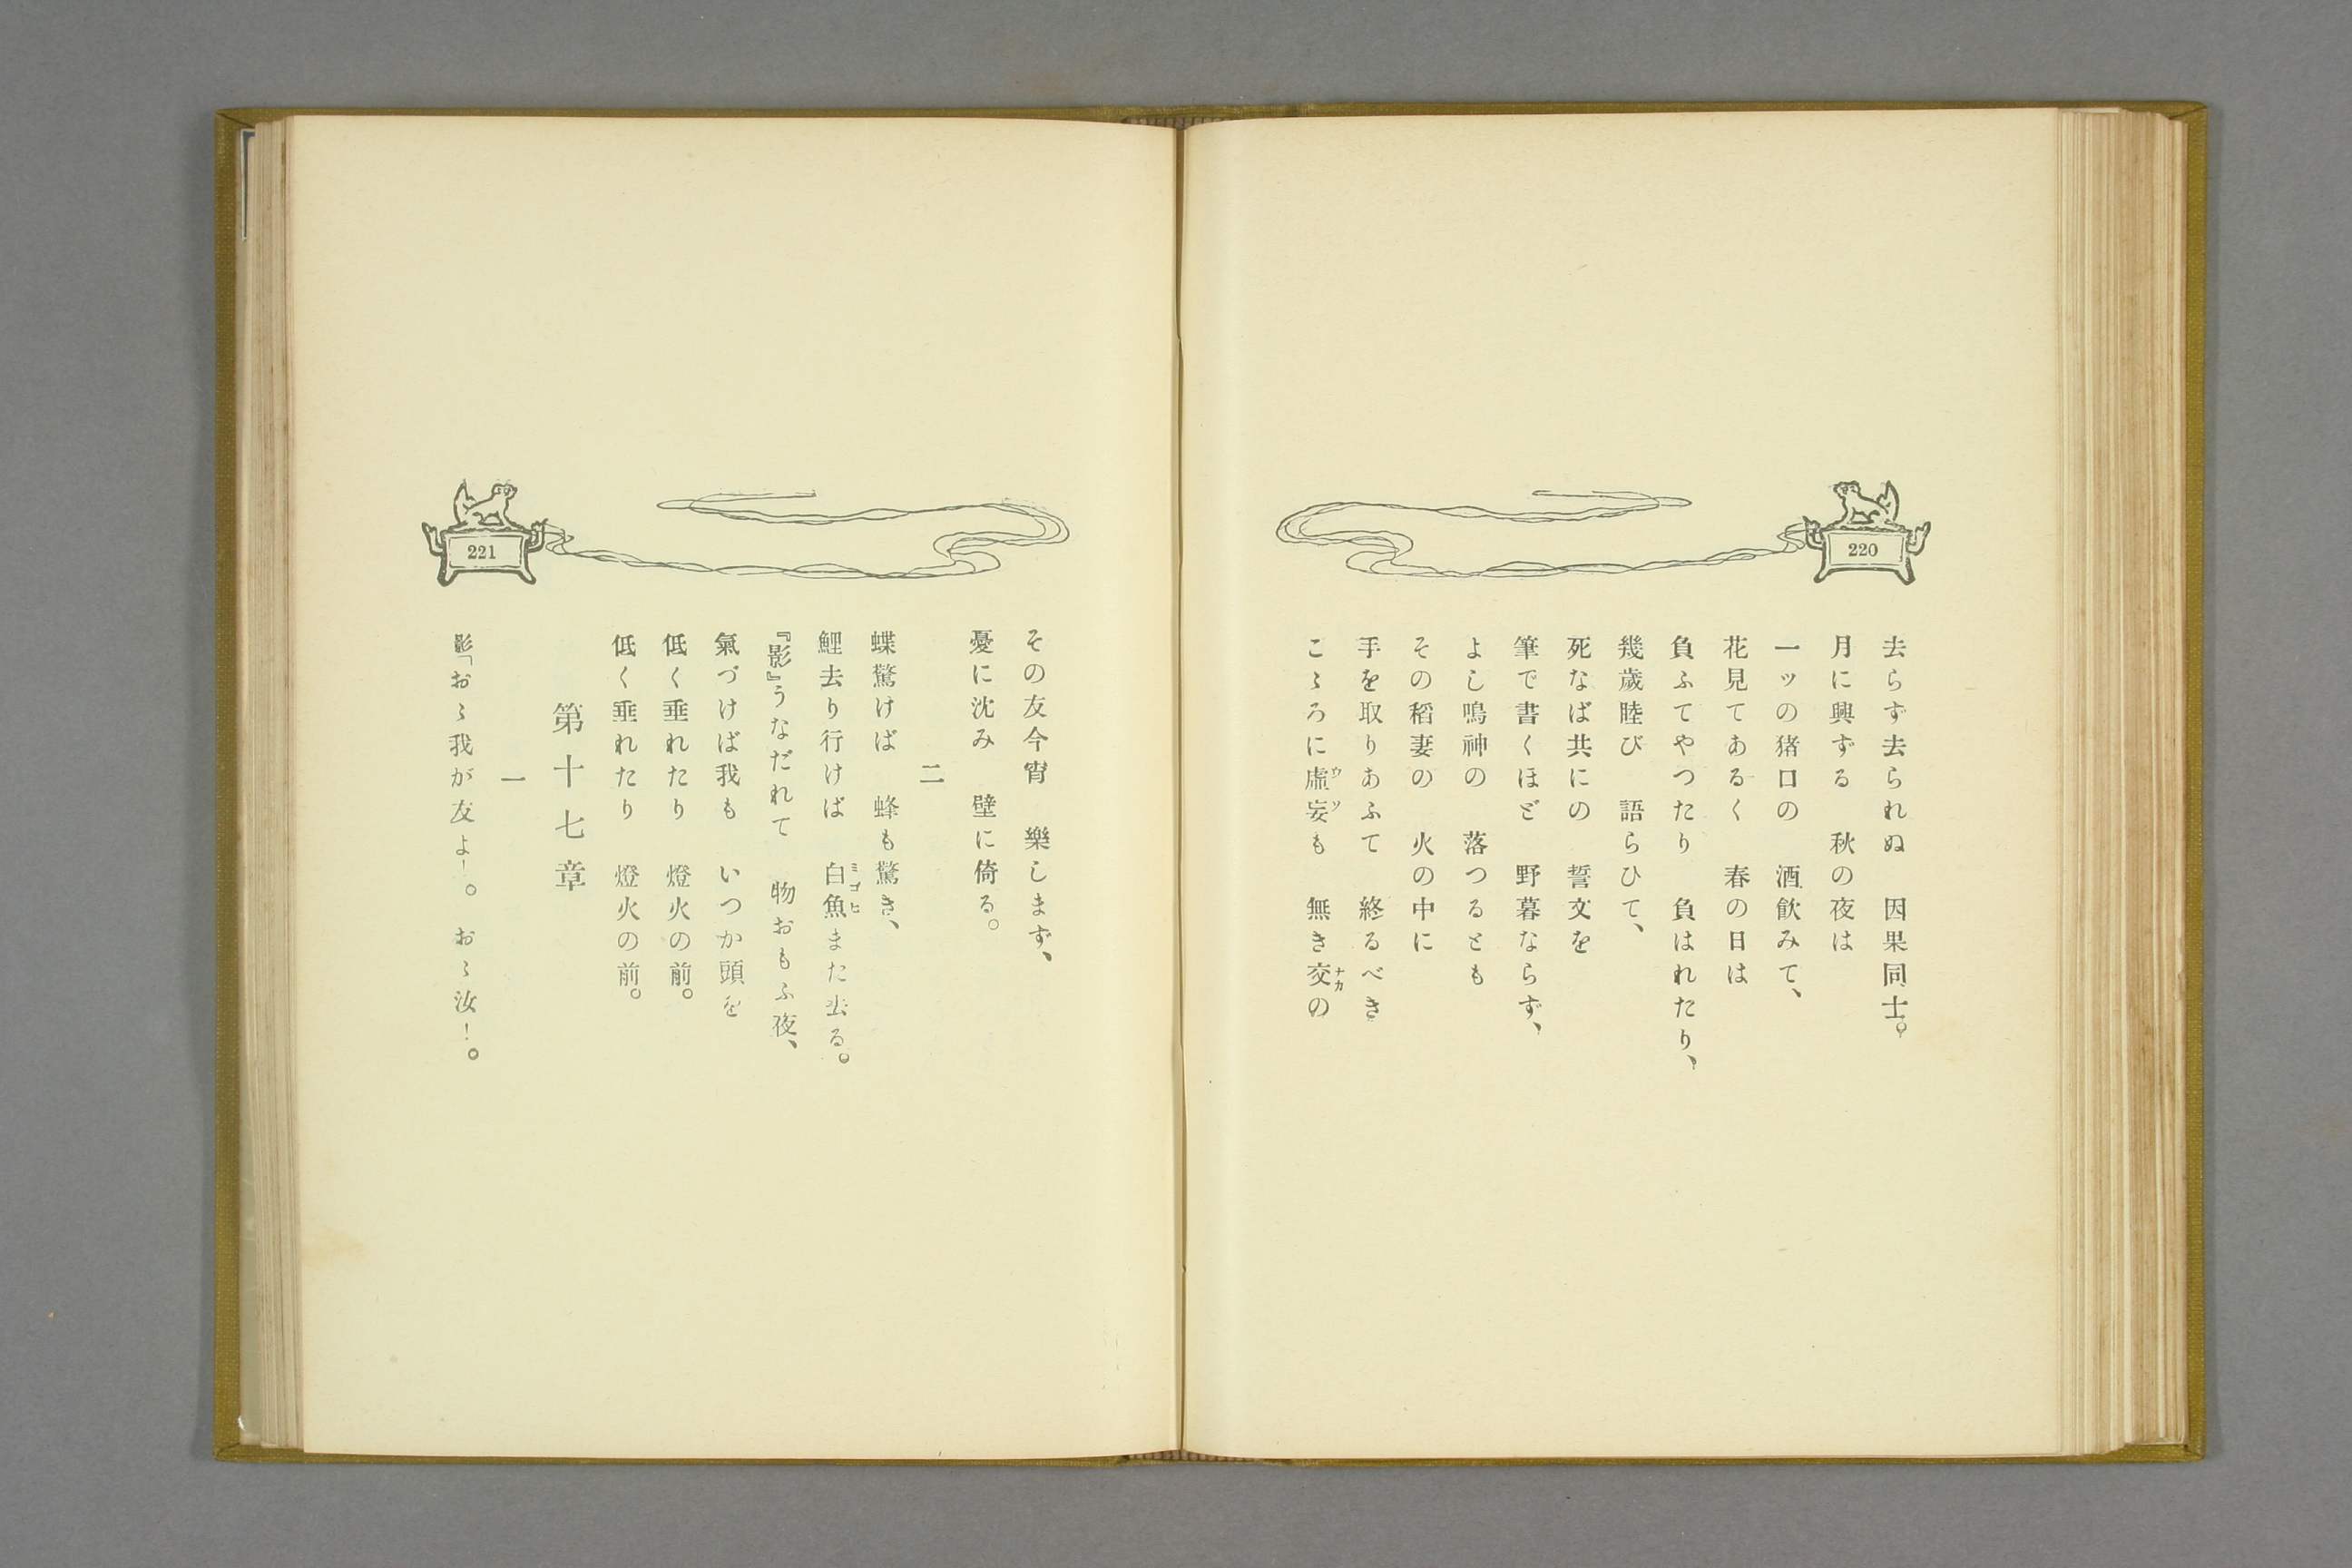 220
去らず去られぬ　因果同士。
月に興ずる　秋の夜は
一ッの猪口の　酒飮みて、
花見てあるく　春の日は
負ふてやつたり　負はれたり、
幾歲睦び　語らひて、
死なば共にの　誓文を
筆で書くほど　野暮ならず、
よし鳴神の　落つるとも
その稻妻の　火の中に
手を取りあふて　終るべき
こゝろに虛妄も　無き交の
ウソ
ナカ
221
その友今宵　樂しまず、
憂に沈み　壁に倚る。
二
蝶驚けば　蜂も驚き、
鯉去り行けば　白魚また去る。
ミゴヒ
『影』うなだれて　物おもふ夜、
氣づけば我も　いつか頭を
低く垂れたり　燈火の前。
低く垂れたり　燈火の前。
第十七章
一
影「おゝ我が友よ！。おゝ汝！。